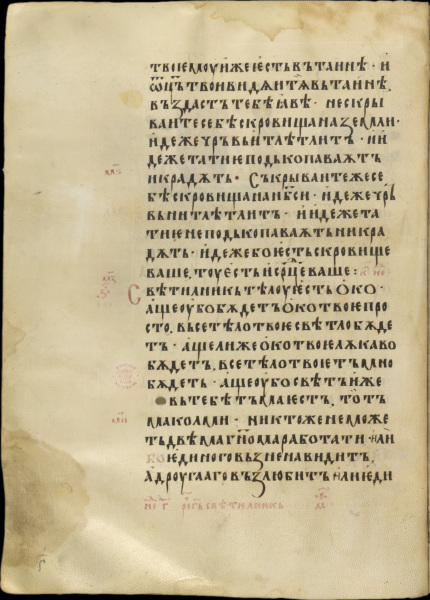 твоемоу иже ѥсть вътаинѣ · и
ѿц҃ь твои видѧи тѧ вьтаинѣ
въздасть тебѣ ꙗвѣ · не скры
ваите себѣ скровища на земли ·
идеже урьвь и тлѣ тлитъ · и и
деже татиѥ подъкопаваѫтъ
и крадѫтъ · Съкрываите же се
бѣ скровища на нб҃си · идеже урь
вь ни тлѣ тлитъ · и идеже та
тиѥ не подъкопаваѫтъ ни кра
дѫтъ · идеже бо ѥсть скровище
ваше, тоу ѥсть и срⷣце ваше :
Свѣтилникъ тѣлоу ѥсть око ·
аще оубо бѫдетъ око твоѥ про
сто, вьсе тѣло твоѥ свѣтло бѫде
тъ · аще ли же око твоѥ лѫкаво
бѫдетъ, все тѣло твоѥ тъмно
бѫдеть · аще оубо свѣтъ иже
вь тебѣ тъма ѥстъ, то тъ
ма колми · никтоже не може
тъ двѣма гн҃ома работати · или
бо ѥдиного възненавидитъ,
а дроугааго възлюбитъ · или ѥди
свѣтилникь